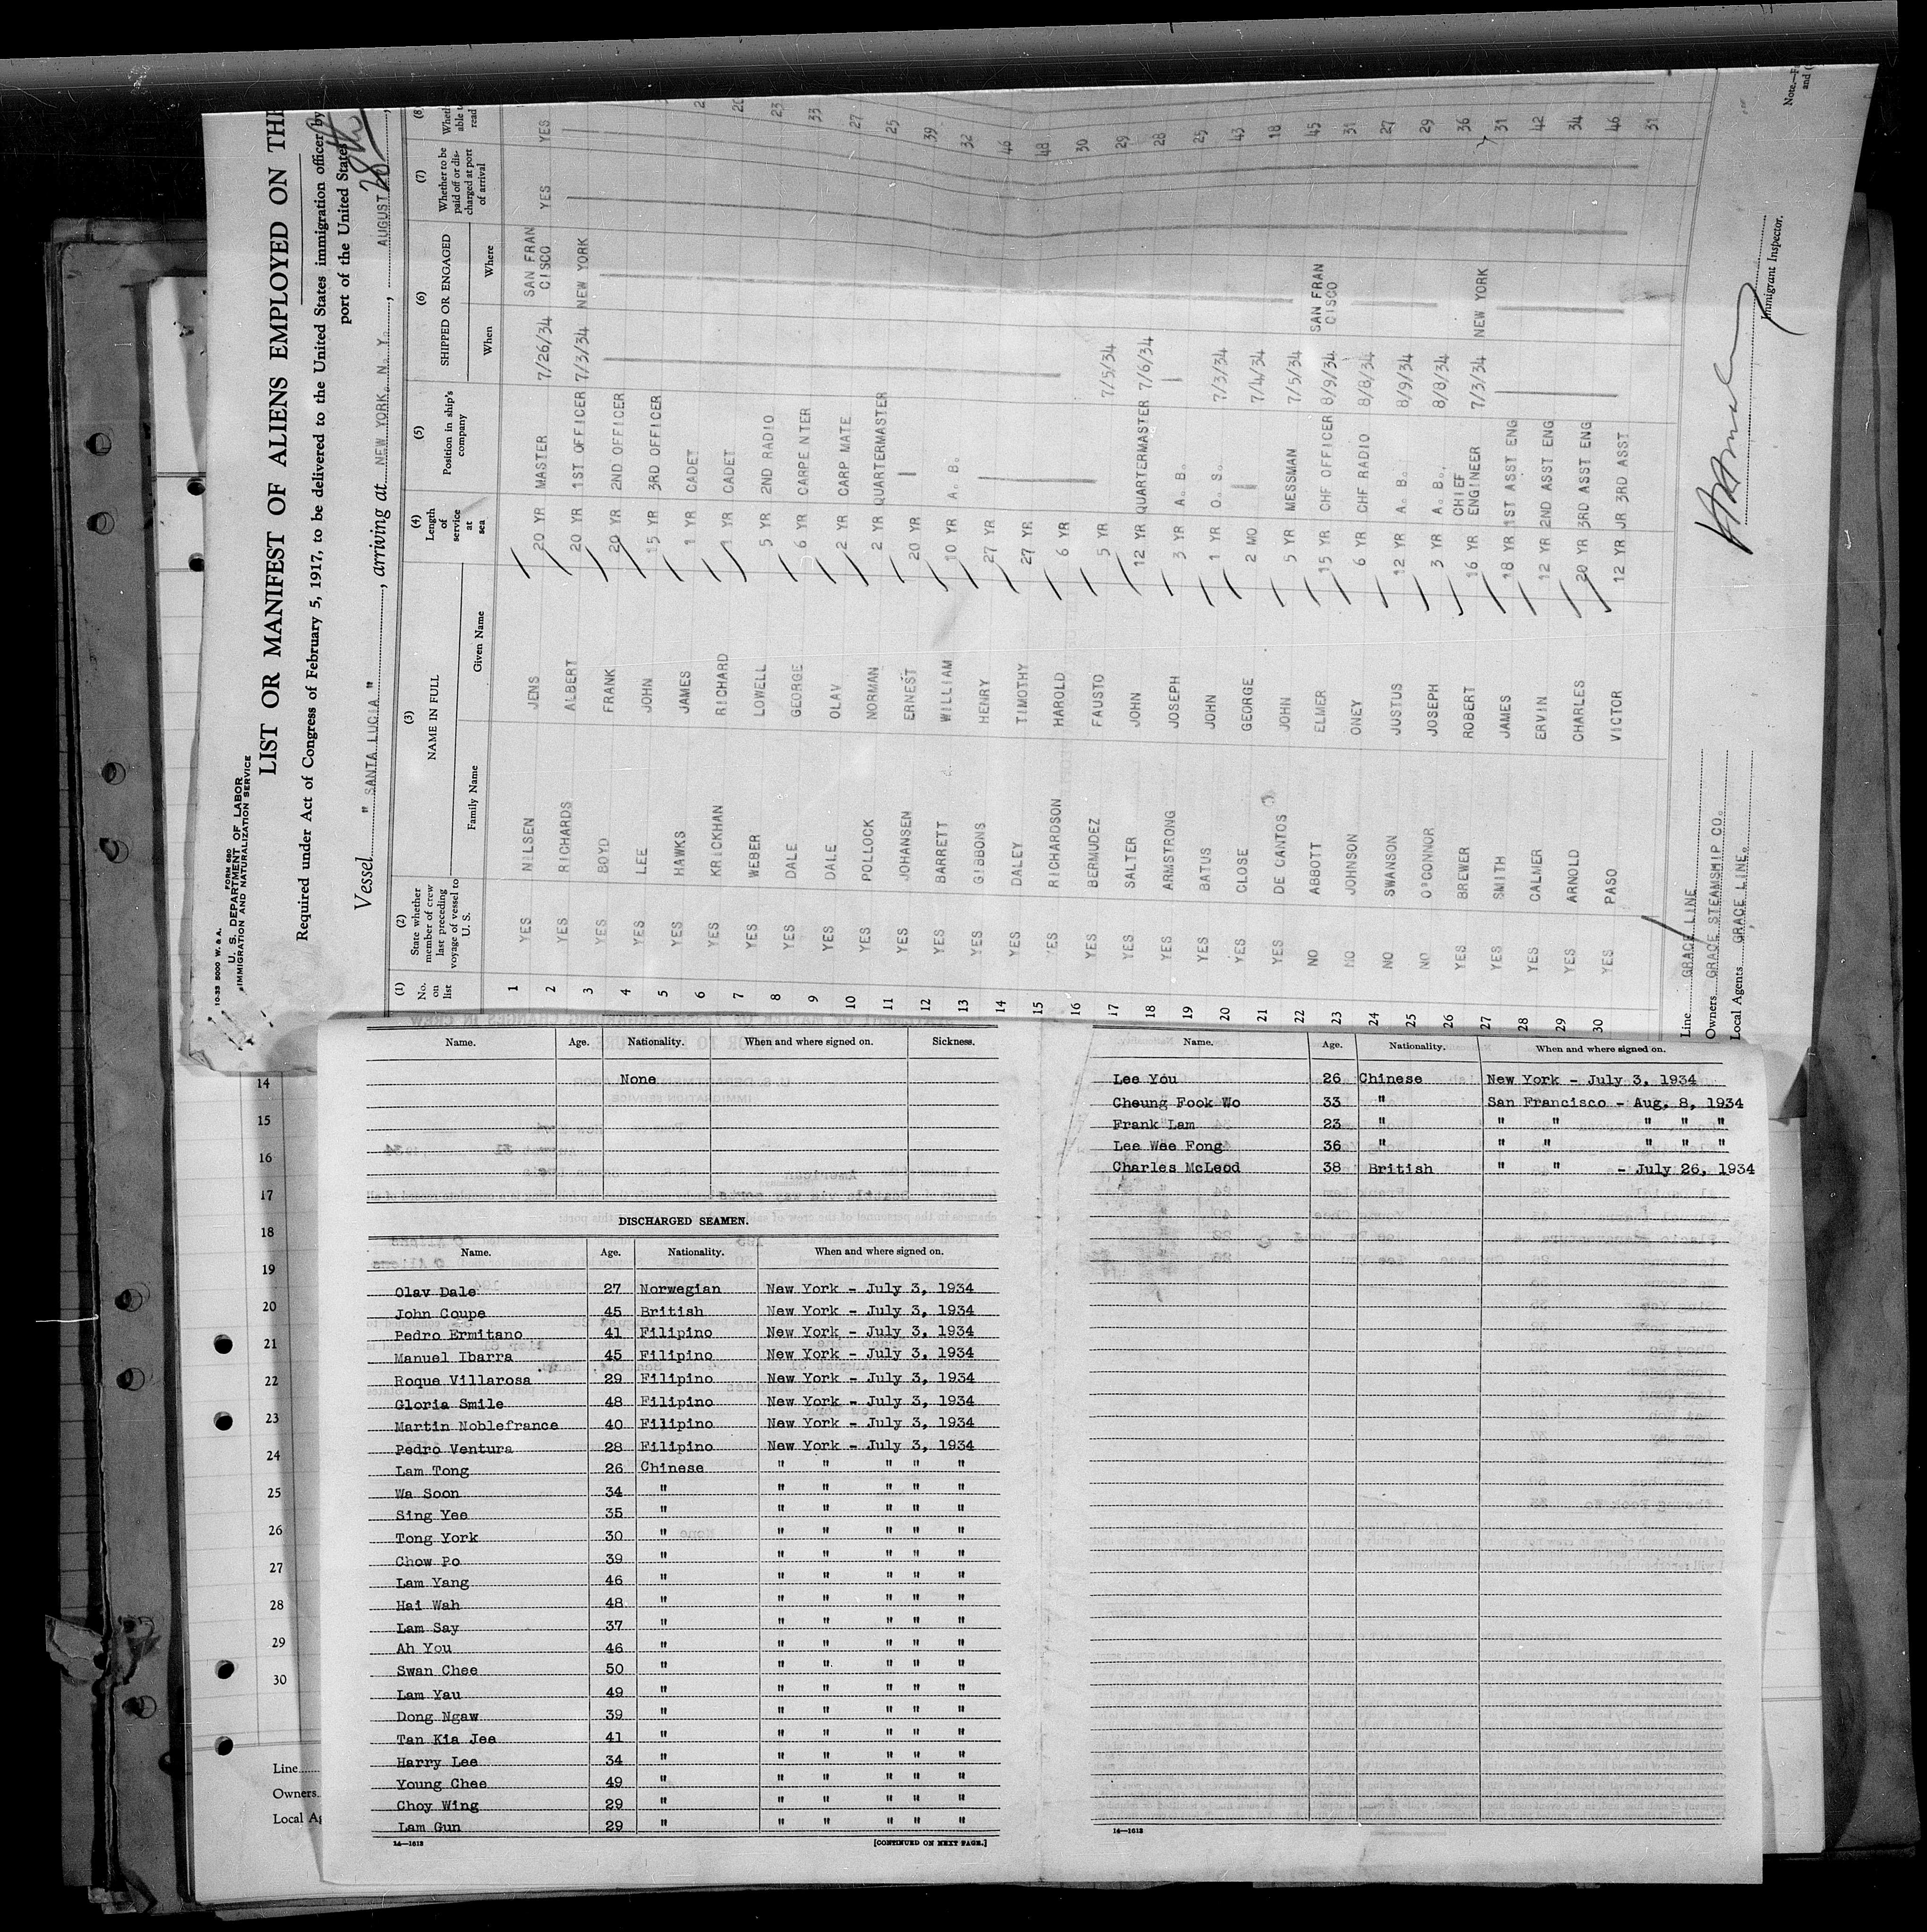 10-33 5000 W. & A.
FORM 680
U. S. DEPARTMENT OF LABOR
IMMIGRATION AND NATURALIZATION SERVICE
LIST OR MANIFEST OF ALIENS EMPLOYED ON THE
Required under Act of Congress of February 5, 1917, to be delivered to the United States immigration officer by
port of the United States
Vessel " SANTA LUCIA ", arriving at NEW YORK. N. Y., AUGUST 28th
(1) (2) (3) (4) (5) (6) (7) (8)
No. on list State whether member of crew last preceding voyage of vessel to U. S. NAME IN FULL Length of service at sea Position in ship's company SHIPPED OR ENGAGED Whether to be paid off or discharged at port of arrival
Family Name Given Name When Where
1 YES NILSEN JENS 20 YR MASTER 7/26/34 SAN FRAN CISCO YES YES
2 YES RICHARDS ALBERT 20 YR 1ST OFFICER 7/3/34 NEW YORK
3 YES BOYD FRANK 20 YR 2ND OFFICER
4 YES LEE JOHN 15 YR 3RD OFFICER
5 YES HAWKS JAMES 1 YR CADET
6 YES KRICKHAN RICHARD 1 YR CADET
7 YES WEBER LOWELL 5 YR 2ND RADIO 23
8 YES DALE GEORGE 6 YR CARPE NTER 33
9 YES DALE OLAV 2 YR CARP MATE 27
10 YES POLLOCK NORMAN 2 YR QUARTERMASTER 25
11 YES JOHANSEN ERNEST 20 YR 39
12 YES BARRETT WILLIAM 10 YR A. B. 32
13 YES GIBBONS HENRY 27 YR 46
14 YES DALEY TIMOTHY 27 YR 48
15 YES RICHARDSON HAROLD 6 YR 30
16 YES BERMUDEZ FAUSTO 5 YR 7/5/34 29
17 YES SALTER JOHN 12 YR QUARTERMASTER 7/6/34 28
18 YES ARMSTRONG JOSEPH 3 YR A. B. 25
19 YES BATUS JOHN 1 YR O. S. 7/3/34 43
20 YES CLOSE GEORGE 2 MO 7/4/34 18
21 YES DE CANTOS JOHN 5 YR MESSMAN 7/5/34 45
22 NO ABBOTT ELMER 15 YR CHF OFFICER 8/9/34 SAN FRAN CISCO 31
23 NO JOHNSON ONEY 6 YR CHF RADIO 8/8/34 27
24 NO SWANSON JUSTUS 12 YR A. B. 8/9/34 29
25 NO O'CONNOR JOSEPH 3 YR A. B. 8/8/34 36
26 YES BREWER ROBERT 16 YR CHIEF ENGINEER 7/3/34 NEW YORK 31
27 YES SMITH JAMES 18 YR 1ST ASST ENG 42
28 YES CALMER ERVIN 12 YR 2ND ASST ENG 34
29 YES ARNOLD CHARLES 20 YR 3RD ASST ENG 46
30 YES PASO VICTOR 12 YR JR 3RD ASST 31
Line GRACE LINE
Owners GRACE STEAMSHIP CO.
Local Agents GRACE LINE.
Immigrant Inspector.
Name. Age. Nationality. When and where signed on. Sickness.
None
DISCHARGED SEAMEN.
Name. Age. Nationality. When and where signed on.
Olav Dale 27 Norwegian New York - July 3, 1934
John Coupe 45 British New York - July 3, 1934
Pedro Ermitano 41 Filipino New York - July 3, 1934
Manuel Ibarra 45 Filipino New York - July 3, 1934
Roque Villarosa 29 Filipino New York - July 3, 1934
Gloria Smile 48 Filipino New York - July 3, 1934
Martin Noblefrance 40 Filipino New York - July 3, 1934
Pedro Ventura 28 Filipino New York - July 3, 1934
Lam Tong 26 Chinese " " " " "
Wa Soon 34 " " " " " "
Sing Yee 35 " " " " " "
Tong York 30 " " " " " "
Chow Po 39 " " " " " "
Lam Yang 46 " " " " " "
Hai Wah 48 " " " " " "
Lam Say 37 " " " " " "
Ah You 46 " " " " " "
Swan Chee 50 " " " " " "
Lam Yau 49 " " " " " "
Dong Ngaw 39 " " " " " "
Tan Kia Jee 41 " " " " " "
Harry Lee 34 " " " " " "
Young Chee 49 " " " " " "
Choy Wing 29 " " " " " "
Lam Gun 29 " " " " " "
14—1613
[CONTINUED ON NEXT PAGE.]
Name. Age. Nationality. When and where signed on.
Lee You 26 Chinese New York - July 3, 1934
Cheung Fook Wo 33 " San Francisco - Aug. 8, 1934
Frank Lam 23 " " " " " "
Lee Wee Fong 36 " " " " " "
Charles McLeod 38 British " " - July 26, 1934
14—1613
14
15
16
17
18
19
20
21
22
23
24
25
26
27
28
29
30
Line
Owners
Local Ag